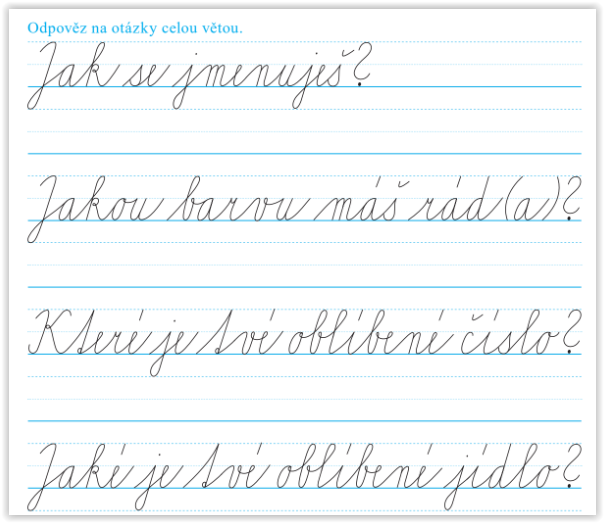 Odpověz na otázky celou větou.
Jak se jmenuješ?
Jakou barvu máš rád(a)?
Které je tvé oblíbené číslo?
Jaké je tvé oblíbené jídlo?